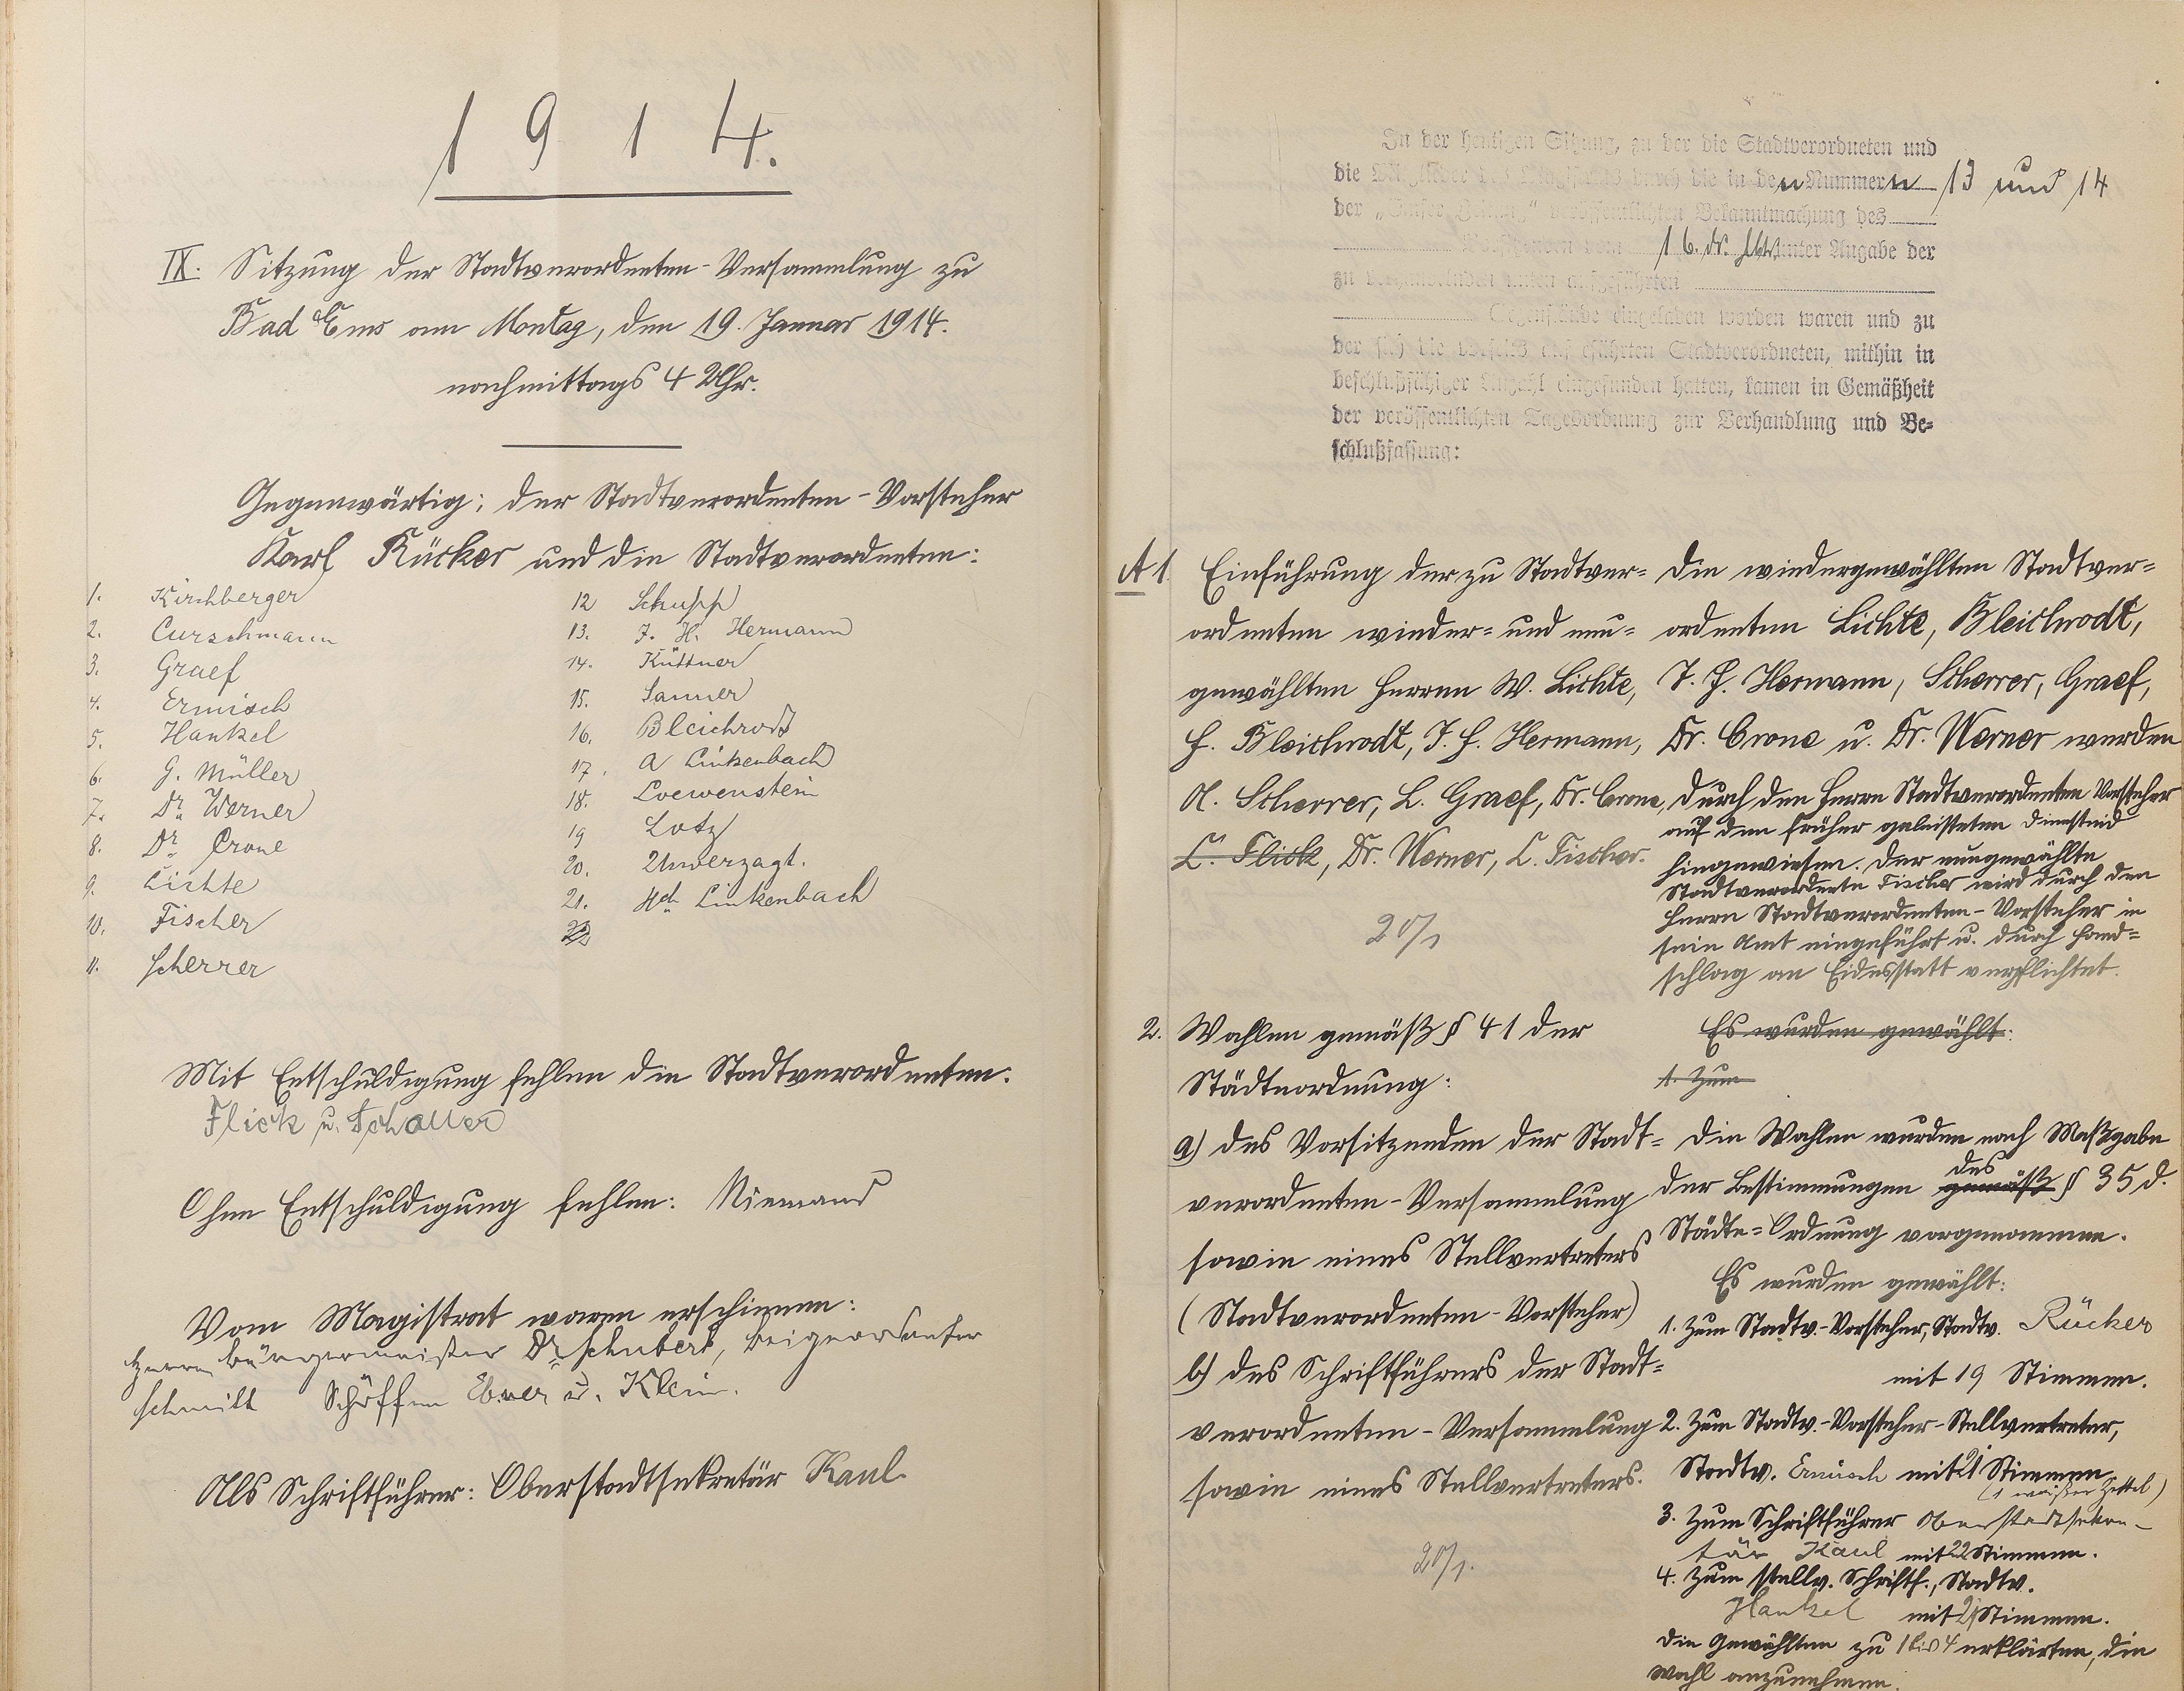 1914.
IX. Sitzung der Stadtverordneten-Versammlung zu
Bad Ems am Montag, den 19. Januar 1914.
nachmittags 4 Uhr.
Gegenwärtig: der Stadtverordneten-Vorsteher
Karl Rücker und die Stadtverordneten:
1. Kirchberger
2. Curschmann
3. Graef
4. Ermisch
5. Hankel
6. G. Müller
7. Dr. Werner
8. Dr. Crone
9. Lichte
10. Fischer
11. Scherrer
12 Schupp
13. J. H. Hermann
14. Küttner
15. Sanner
16. Bleichrodt
17. A Linkenbach
18. Loewenstein
19 Lotz
20. Unverzagt.
21. Hch Linkenbach
22
Mit Entschuldigung fehlen die Stadtverordneten:
Flick u. Schauer
Ohne Entschuldigung fehlen: Niemand
Vom Magistrat waren erschienen:
Herrn Bürgermeister Dr Schubert, Beigeordneter
Schmitt Schöffen Ebner u. Klein.
Als Schriftführer: Oberstadtsekretär Kaul.
In der heutigen Sitzung, zu der die Stadtverordneten und
die Mitglieder des Magistrats durch die in den Nummern 13 und 14
der „Emser Zeitung“ veröffentlichten Bekanntmachung des
vom 16. ds. Mts. unter Angabe der
zu verhandelnden unten aufgeführten
Gegenstände eingeladen worden waren und zu
der sich die vorseits aufgeführten Stadtverordneten, mithin in
beschlußfähiger Anzahl eingefunden hatten, kamen in Gemäßheit
der veröffentlichten Tagesordnung zur Verhandlung und Be-
schlußfassung:
A 1. Einführung der zu Stadtver-
ordneten wieder- und neu-
gewählten Herren W. Lichte,
H. Bleichrodt, J. H. Hermann,
A. Scherrer, L. Graef, Dr. Crone,
C. Flick, Dr. Werner, C. Fischer.
20/1
Die wiedergewählten Stadtver-
ordneten Lichte, Bleichrodt,
J. H. Hermann, Scherrer, Graef,
Dr. Crone u. Dr. Werner werden
durch den Herrn Stadtverordneten Vorsteher
auf den früher geleisteten Diensteid
hingewiesen. Der neugewählte
Stadtverordnete Fischer wird durch den
Herrn Stadtverordneten-Vorsteher in
sein Amt eingeführt u. durch Hand-
schlag an Eidesstatt verpflichtet.
2. Wahlen gemäß § 41 der
Städteordnung:
a) des Vorsitzenden der Stadt-
verordneten-Versammlung
sowie eines Stellvertreters
(Stadtverordneten-Vorsteher)
b) des Schriftführers der Stadt-
verordneten-Versammlung
sowie eines Stellvertreters.
20/1.
Es wurden gewählt:
1. Zum
Die Wahlen wurden nach Maßgabe
der Bestimmungen gemäß des § 35 d.
Städte-Ordnung vorgenommen.
Es wurden gewählt:
1. Zum Stadtv.-Vorsteher, Stadtv. Rücker
mit 19 Stimmen.
2. Zum Stadtv.-Vorsteher-Stellvertreter,
Stadtv. Ermisch mit 21 Stimmen
(1 weißer Zettel)
3. Zum Schriftführer Oberstadtsekre-
tär Kaul mit 22 Stimmen.
4. Zum stellv. Schriftf., Stadtv.
Hankel mit 21 Stimmen.
Die Gewählten zu 1 bis 4 erklärten, die
Wahl anzunehmen.